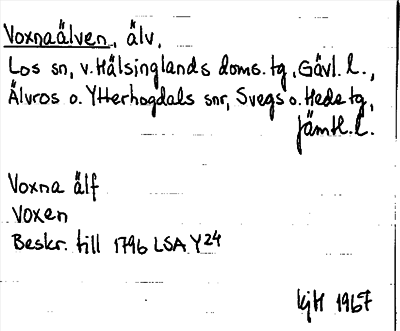 Voxnaälven, älv,
Los sn, v. Hälsinglands doms. tg, Gävl. l.,
Älvros o. Ytterhogdals snr, Svegs o. Hede tg,
Jämtl. l.
Voxna älf
Voxen
Beskr. till 1796 LSA Y24
kjH 1967